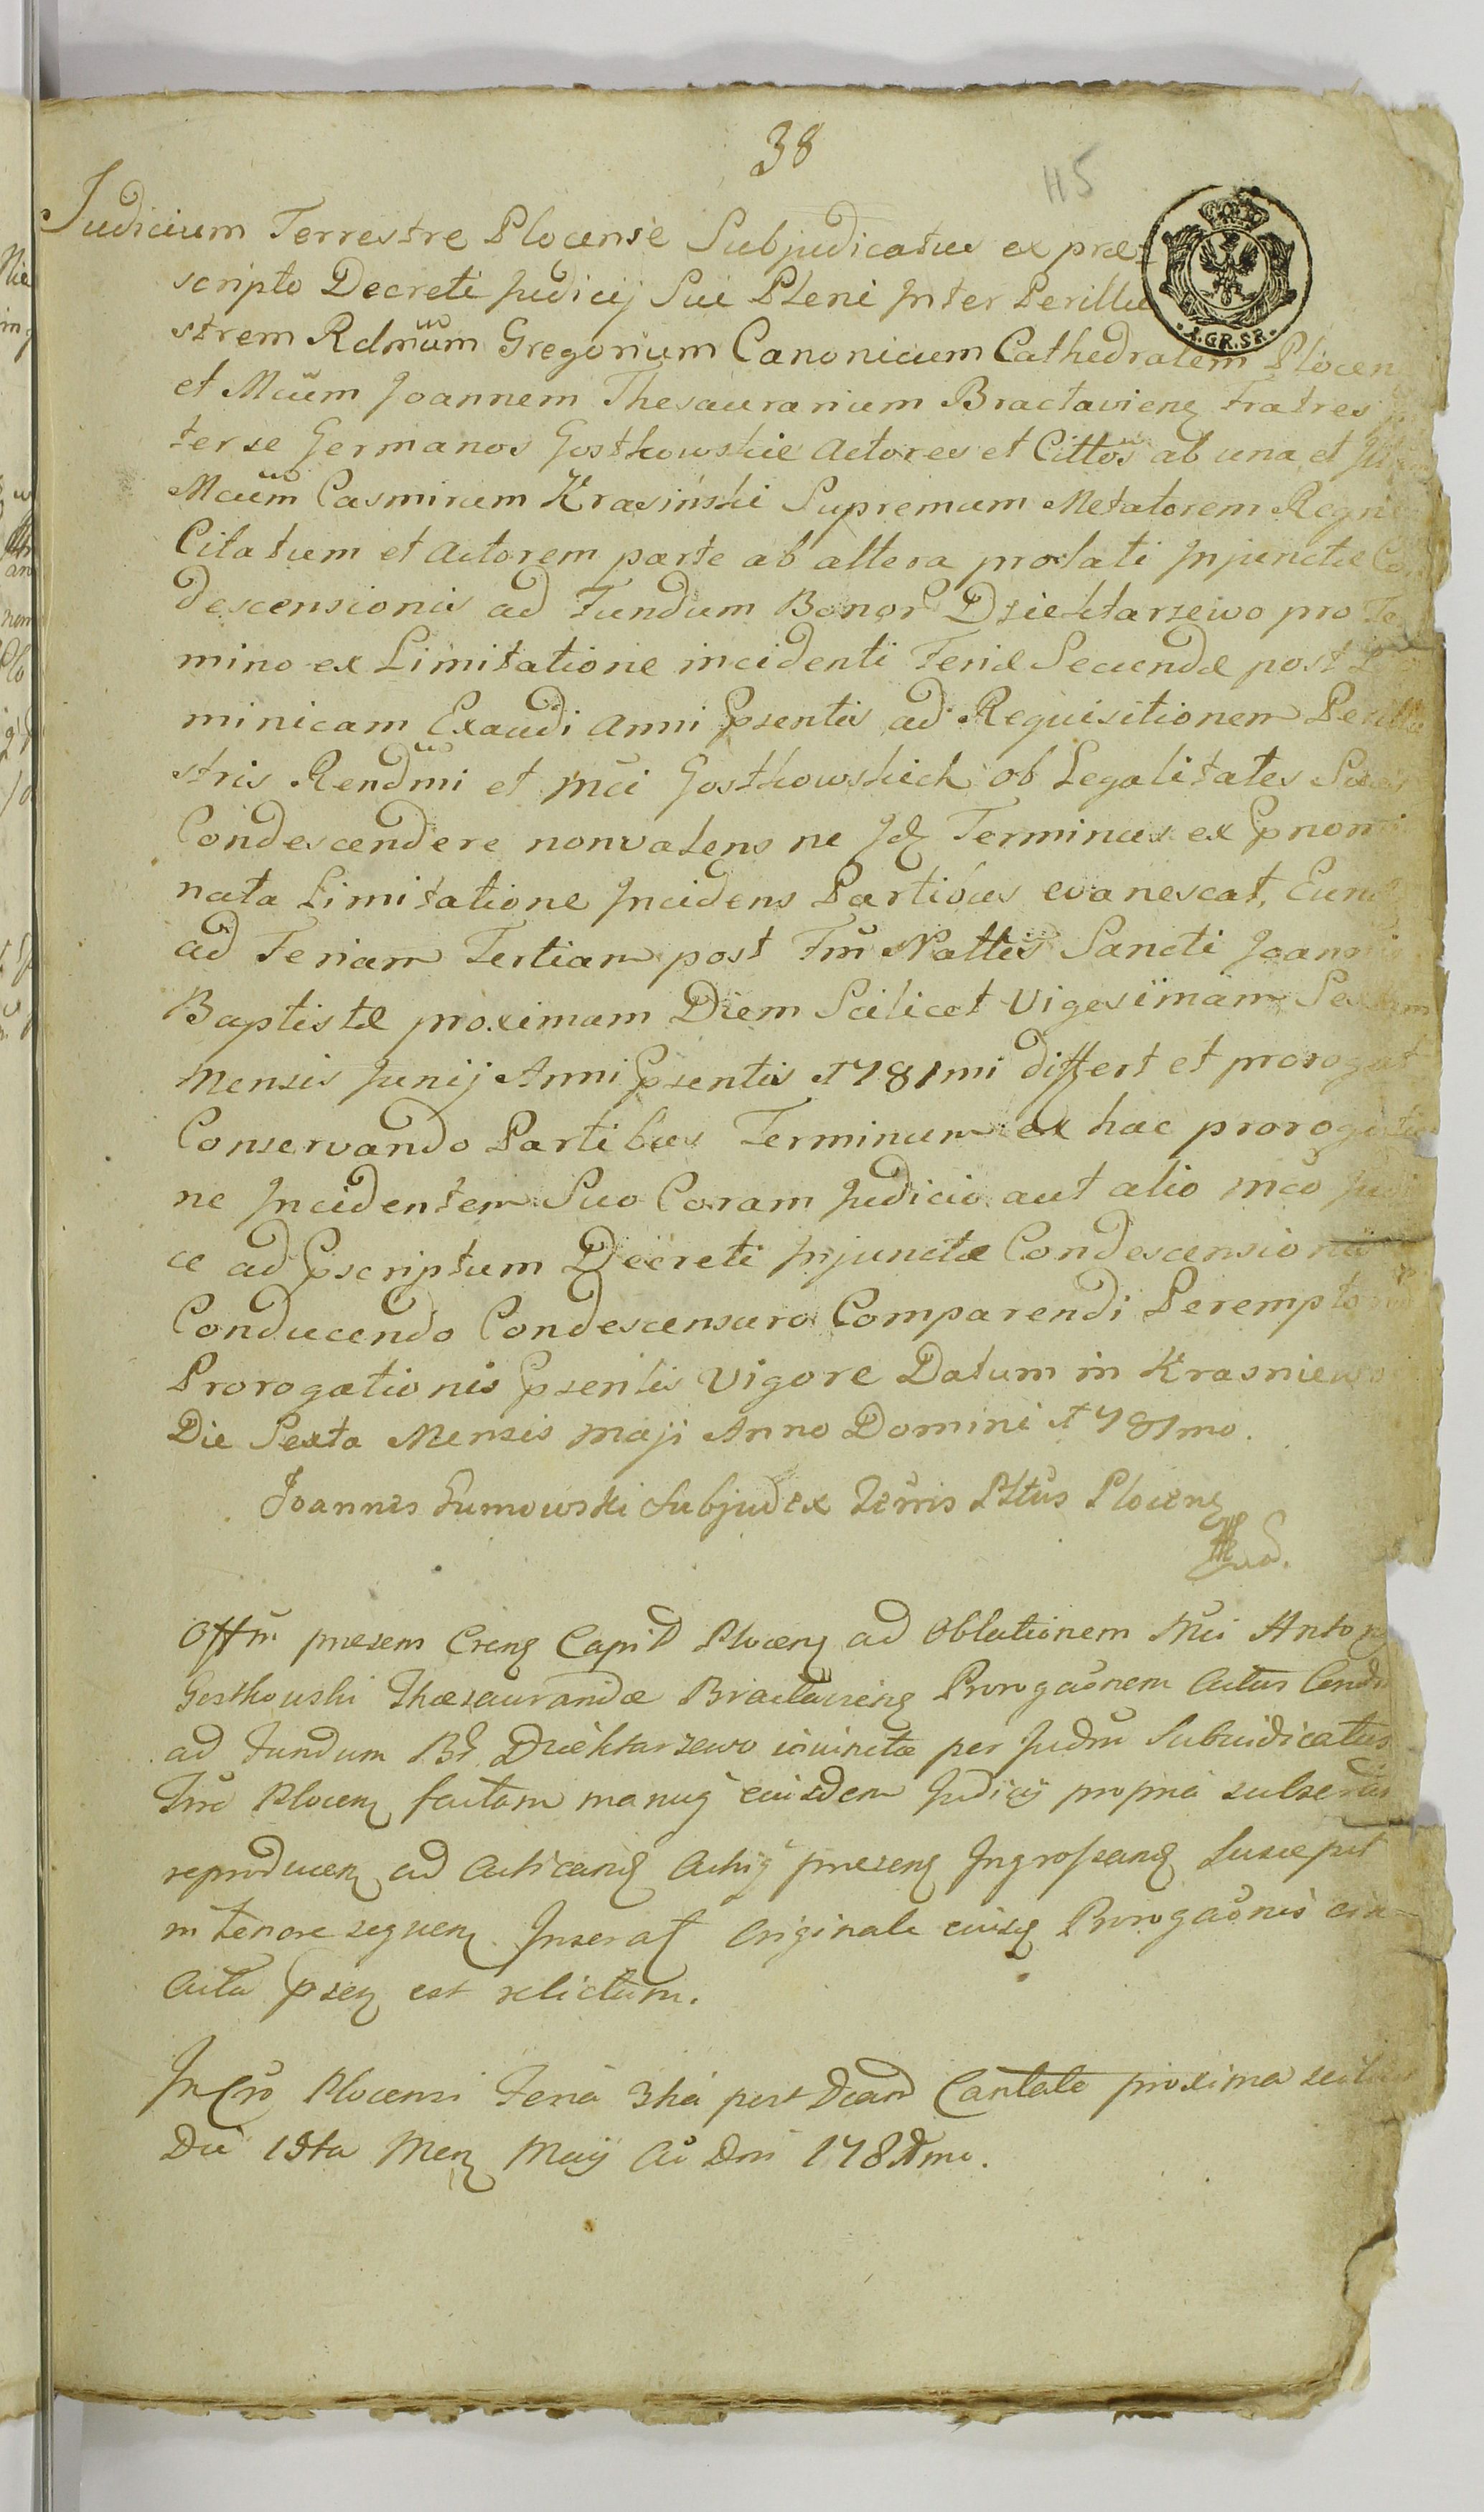 38
115
Judicium Terrestre Plocense Subjudicatus ex præ-
scripto Decreti Judicij Sui Pleni Inter Perillu
strem Rdmum Gregorium Canonicum Cathedralem Plocen
et Mcum Joannem Thesaurarium Bractaviens Fratres
ter se Germanos Gostkowskie Actores et Cittos ab una et
Mcum Casmirum Krasiński Supremum Metatorem Regni
Citatum et Actorem parte ab altera prolati Injunctæ Con
descensionis ad Fundum Bonor Dziektarzewo pro Ter
mino ex Limitatione incidenti Feriæ Secundæ post Do
minicam Exaudi Anni Psentis ad Requisitionem Perillu
stris Rendmi et Mci Gostkowskich ob Legalitates Suas
Condescendere nonvalens ne Idem Terminus ex Pnomi
nata Limitatione Incidens Partibus evanescat, Eund
ad Feriam Tertiam post Ftm Nattis Sancti Joannis
Baptistæ proximam Diem Scilicet Vigesimam Sextam
Mensis Junij Anni Psentis 1781mi differt et prorogat
Conservando Partibus Terminum ex hac prorogatio
ne Incidentem Suo Coram Judicio aut alio Mco Judi
ce ad Pscriptum Decreti Injunctæ Condescensionis
Conducendo Condescensuro Comparendi Peremptorie
Prorogationis Psentis Vigore Datum in Krasniewo
Die Sexta Mensis Maji Anno Domini 1781mo.
Joannes Sumowski Subjudex Terris Pltus Plocens
Offm præsens Crens Capit Plocens ad Oblationem Mci Anton
Gostkowski Thesauraridæ Bractaviens Prorogaonem Actus Cond
ad Fundum Br Dziektarzewo iniunctæ per Judm Subiudicatus
Tre Plocens factam manuq eiusdem Judicij propria subscript
reproducen ad Acticand Actisq presens Ingrossand Suscepit
in tenore sequen. Inserat Originale eiusq Prorogaonis circa
Acta psen est relictum.
In Cro Plocensi Feria 3tia post Dcam Cantate proxima scilicet
Die 15ta Men Maij Ao Dni 1781mo.